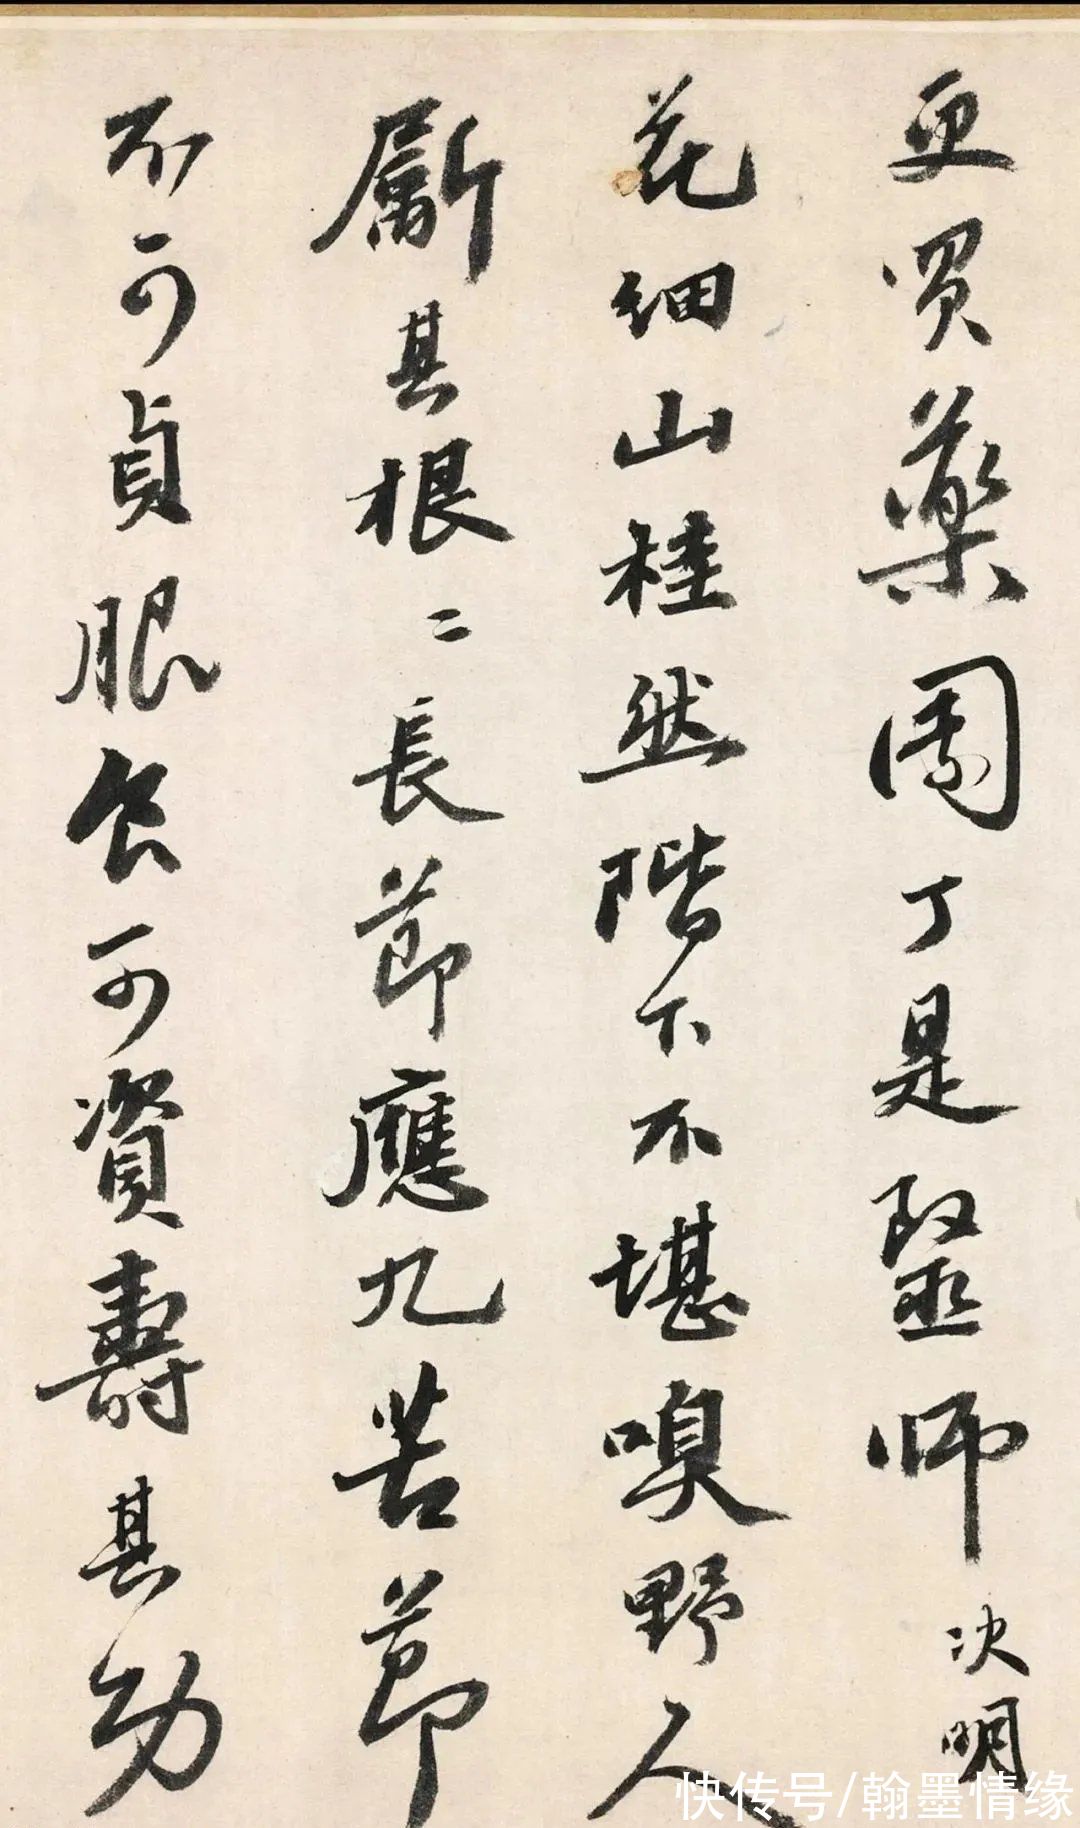 更買藥園丁是毉师 决明
花细山桂然階下不堪嗅野人
斸其根〻長節應九苦節
不可貞服食可資壽其功
快传号/翰墨情缘